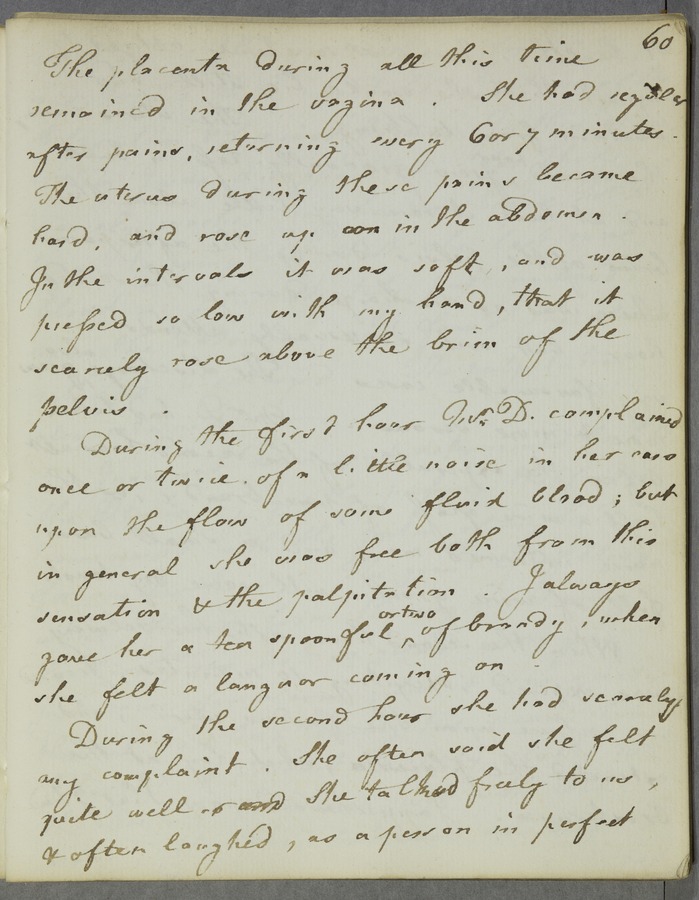 60
The placenta during all this time
remained in the vagina. She had regular
after pains, returning every 6 or 7 minutes.
The uterus during these pains became
hard, and rose up in the abdomen.
In the intervals it was soft, and was
pressed so low with my hand, that it
scarcely rose above the brim of the
pelvis.
During the first hour Mrs. D. complained
once or twice of a little noise in her ears
upon the flow of some fluid blood; but
in general she was free both from this
sensation & the palpitation. I always
gave her a tea spoonful or two of brandy, when
she felt a languor coming on.
During the second hour she had scarcely
any complaint. She often said she felt
quite well & She talked freely to us,
& often laughed, as a person in perfect